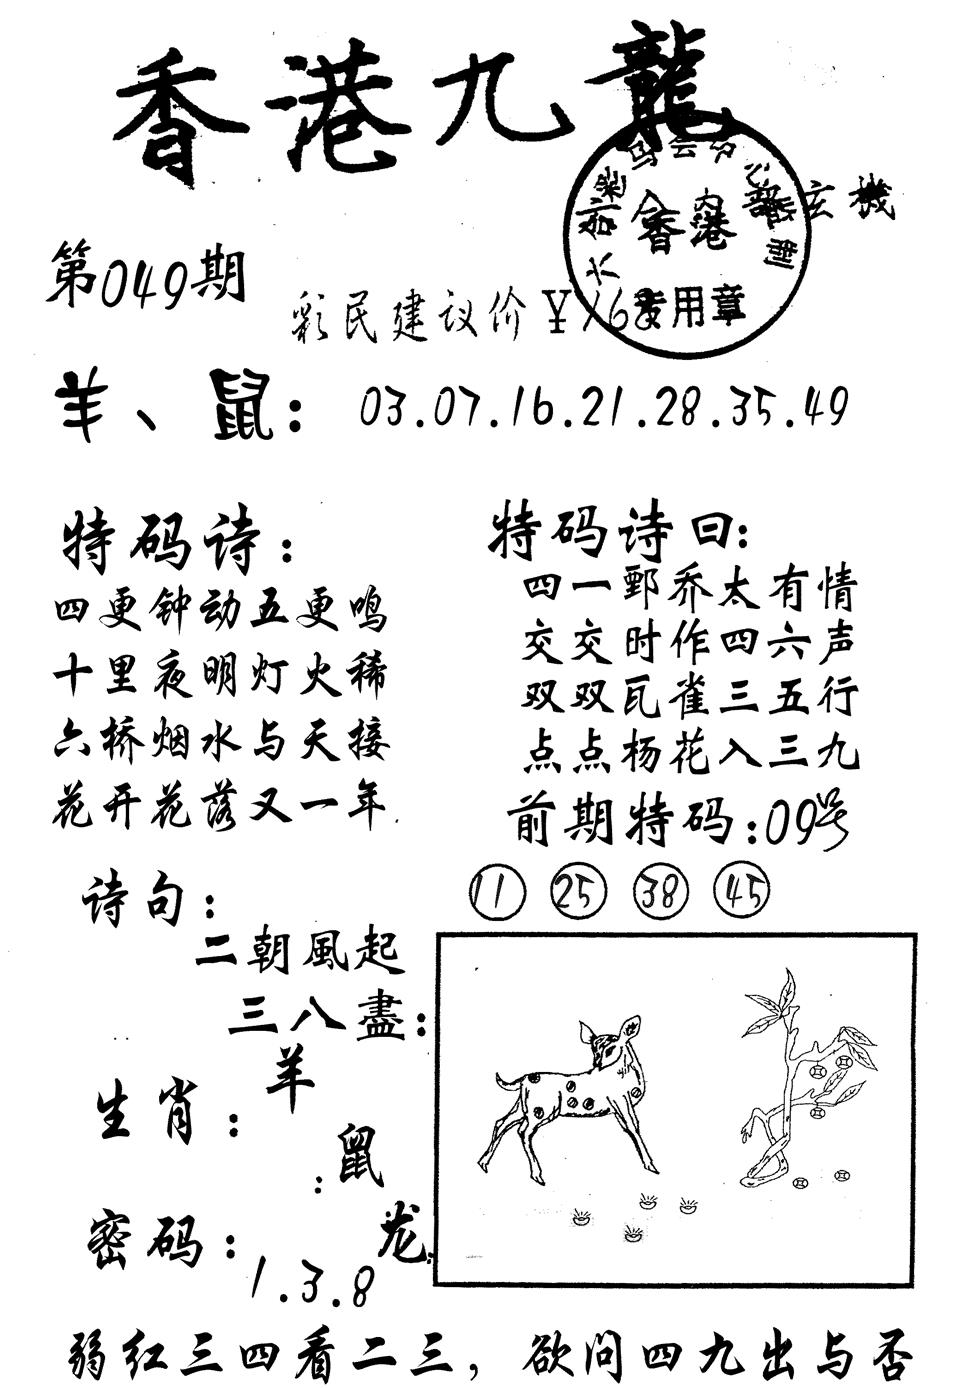 香港九龍
玄機
第049期
彩民建议价¥168
香港
专用章
羊、鼠：03.07.16.21.28.35.49
特码诗：
四更钟动五更鸣
十里夜明灯火稀
六桥烟水与天接
花开花落又一年
特码诗曰：
四一鄄乔太有情
交交时作四六声
双双瓦雀三五行
点点杨花入三九
前期特码：09号
11 25 38 45
诗句：
二朝風起
三八盡：
生肖：羊
：鼠
龙
密码：1.3.8
弱红三四看二三，欲问四九出与否